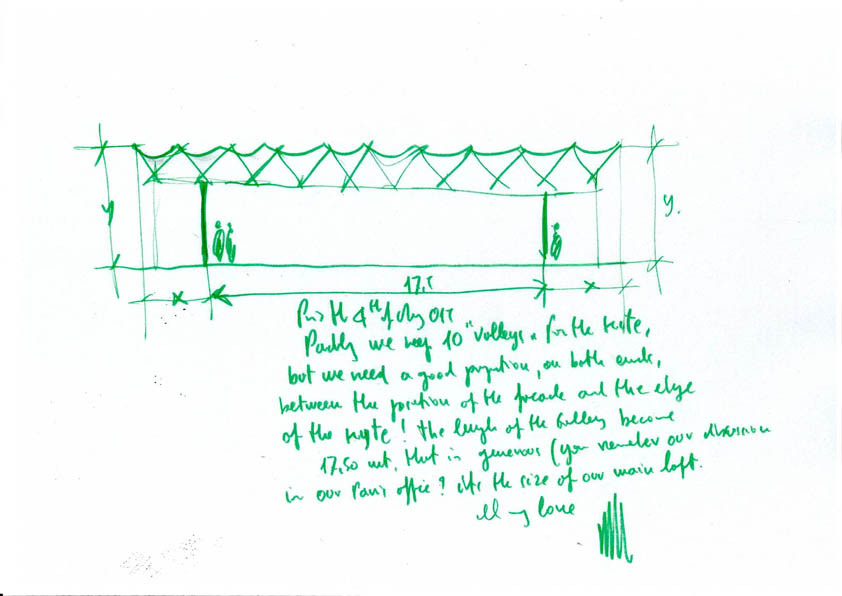 y
y.
17,5
x
x
the 4th of May
we keep 10 "valleys" for the
but we need a good proportion, on both ends,
between the position of the facade and the edge
of the ! the length of the become
17,50 mt, that is generous (you remember our discussion
in our Paris office? it's the size of our main loft.
All my love